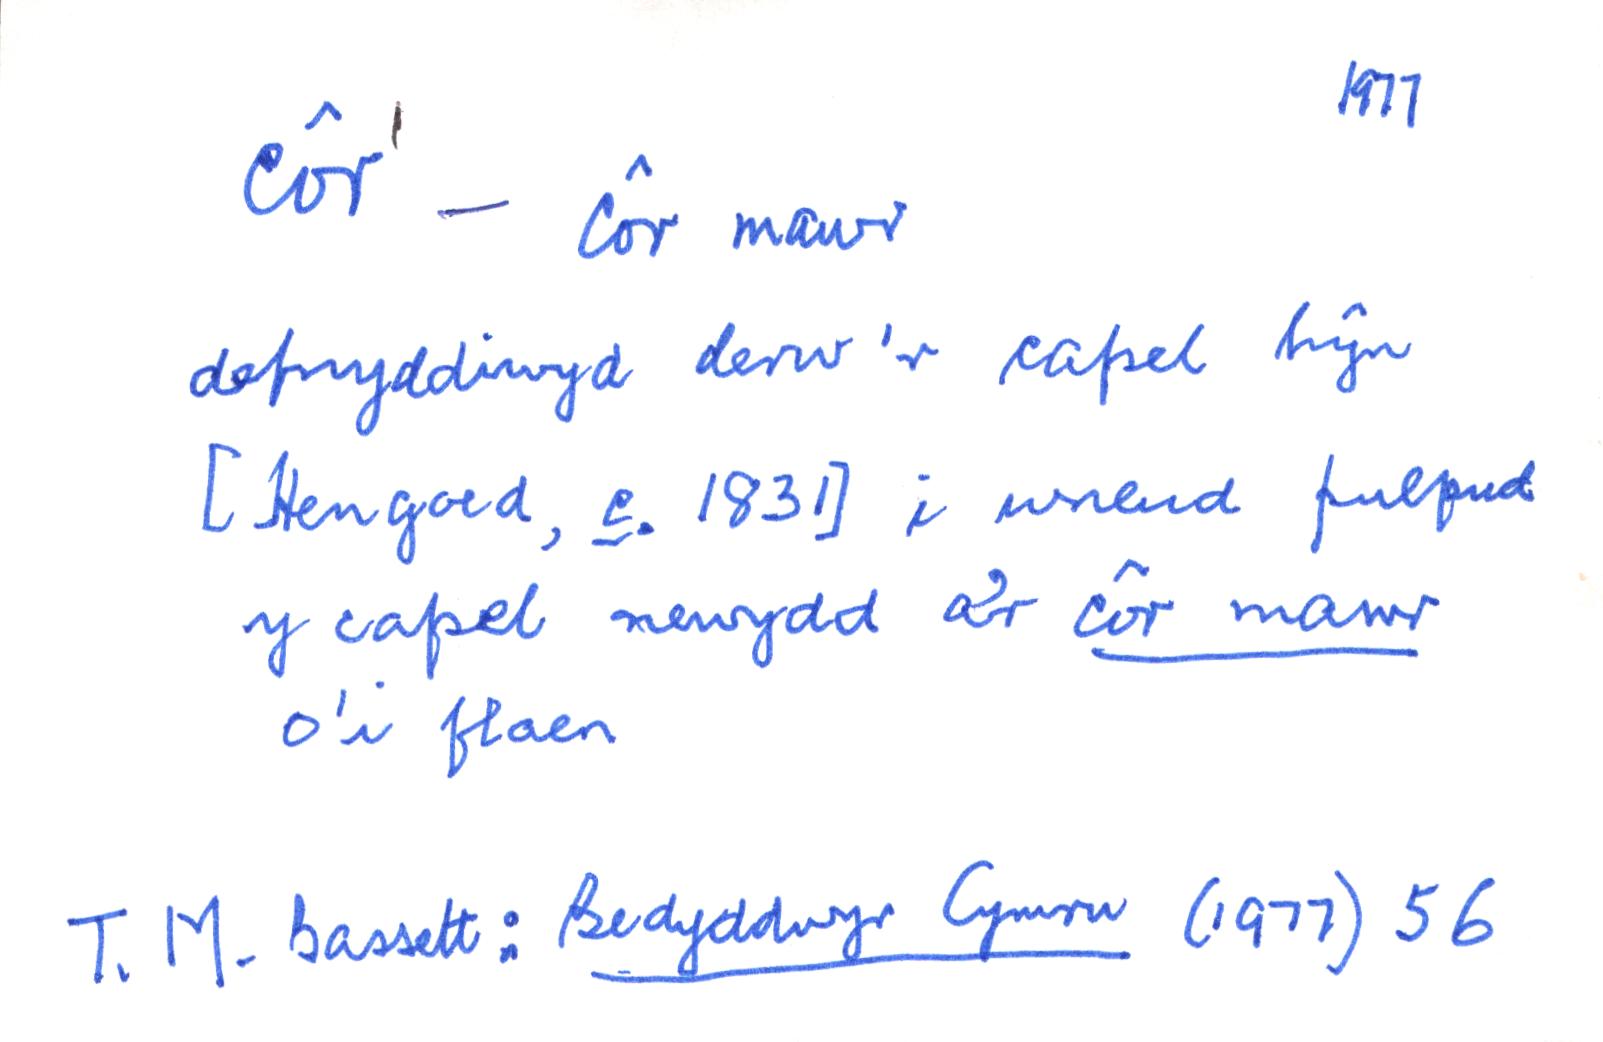 1977
côr¹ — Côr mawr
defnyddiwyd derw'r capel hŷn
[Hengoed, c. 1831] i wneud pulpud
y capel newydd a'r côr mawr
o'i flaen
T. M. Bassett: Bedyddwyr Cymru (1977) 56